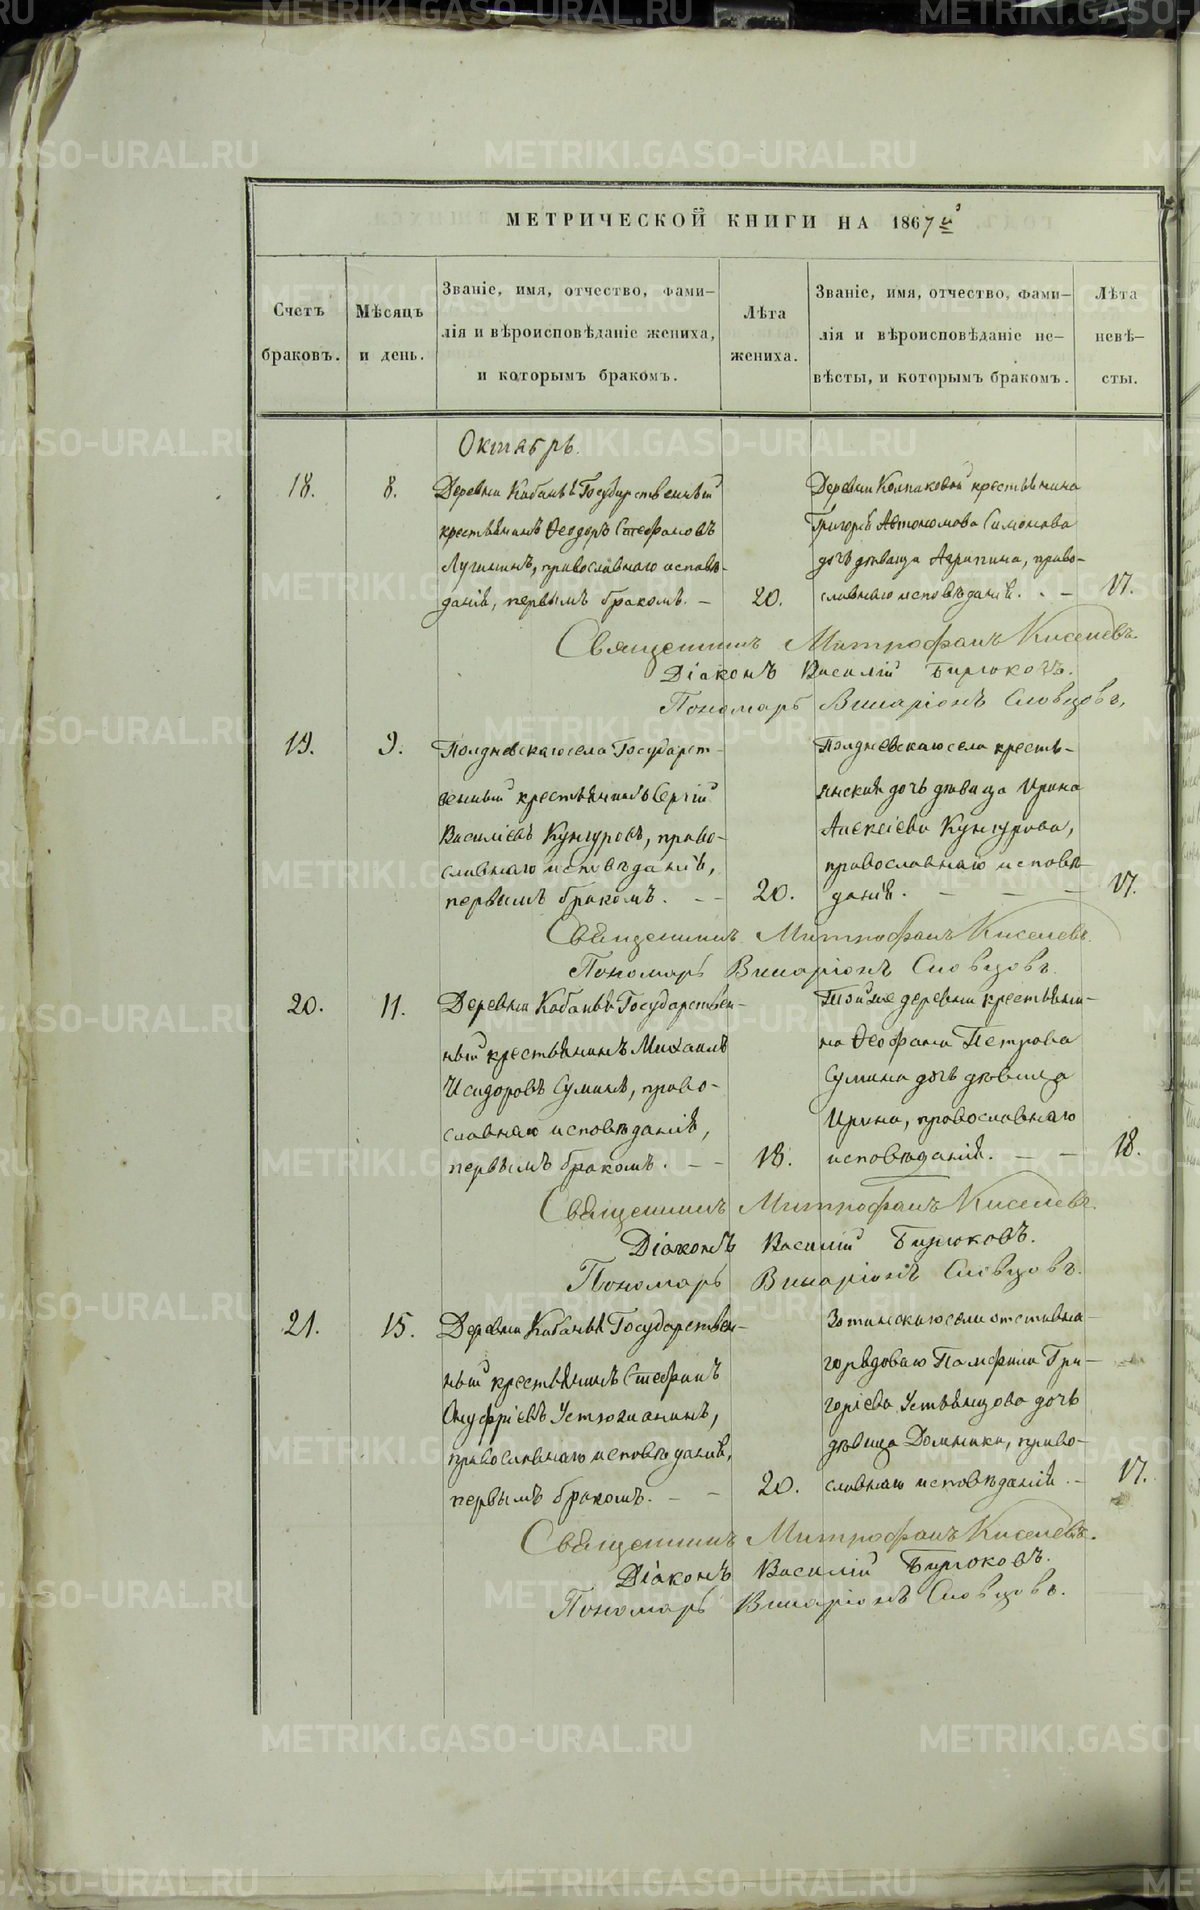 МЕТРИЧЕСКОЙ КНИГИ НА 1867й
Счетъ браковъ.
Мѣсяцъ и день.
Званіе, имя, отчество, фами-
лія и вѣроисповѣданіе жениха,
и которымъ бракомъ.
Лѣта жениха.
Званіе, имя, отчество, фами-
лія и вѣроисповѣданіе не-
вѣсты, и которымъ бракомъ.
Лѣта невѣ-
сты.
Октябрь.
18.
8.
Деревни Кабаньѣ Государственный
крестьянинъ Ѳеодоръ Стефановъ
Лугининъ, православнаго исповѣ-
данія, первымъ бракомъ. –
20.
Деревни Колпаковой крестьянина
Григорія Автономова Симонова
дочь дѣвица Агрипина, право-
славнаго исповѣданія. – –
17.
Священникъ Митрофанъ Киселевъ.
Діаконъ Василій Бирюковъ.
Пономарь Виларіонъ Словцовъ.
19.
9.
Полдневскаго села Государст-
венный крестьянинъ Сергій
Василіевъ Кунгуровъ, право-
славнаго исповѣданія,
первымъ бракомъ. – –
20.
Полдневскаго села кресть-
янская дочь дѣвица Ирина
Алексіева Кунгурова,
православнаго исповѣ-
данія. – – –
17.
Священникъ Митрофанъ Киселевъ.
Пономарь Виларіонъ Словцовъ.
20.
11.
Деревни Кабаньѣ Государствен-
ный крестьянинъ Михаилъ
Исидоровъ Суминъ, право-
славнаго исповѣданія,
первымъ бракомъ. – –
18.
Той же деревни крестьяни-
на Ѳеофана Петрова
Сумина дочь дѣвица
Ирина, православнаго
исповѣданія. – –
18.
Священникъ Митрофанъ Киселевъ.
Діаконъ Василій Бирюковъ.
Пономарь Виларіонъ Словцовъ.
21.
15.
Деревни Кабаньѣ Государствен-
ный крестьянинъ Стефанъ
Онуфріевъ Устюжанинъ,
православнаго исповѣданія,
первымъ бракомъ. – –
20.
Зотинскаго села отставна-
го рядоваго Памфила Гри-
горіева Устьянцова дочь
дѣвица Домника, право-
славнаго исповѣданія. –
17.
Священникъ Митрофанъ Киселевъ.
Діаконъ Василій Бирюковъ.
Пономарь Виларіонъ Словцовъ.
METRIKI.GASO-URAL.RU